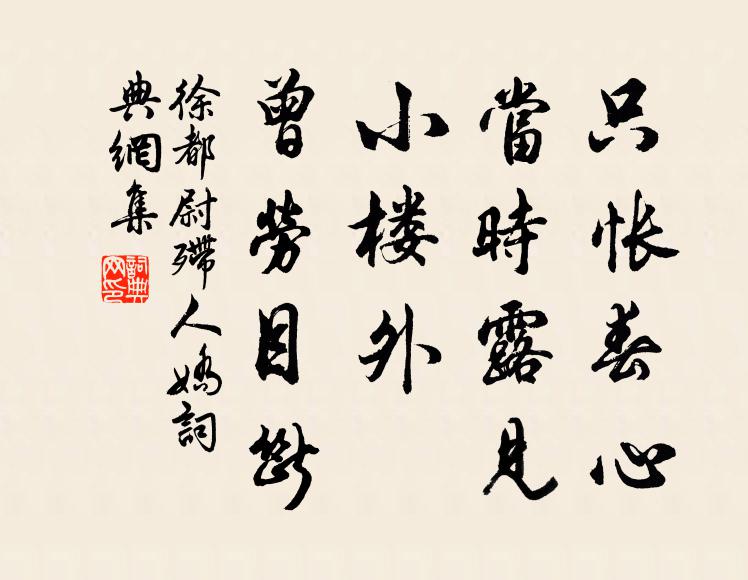 只帐春心
當時露見
小楼外
曾勞目断
徐都尉殢人嬌詞
典網集
詞典網印